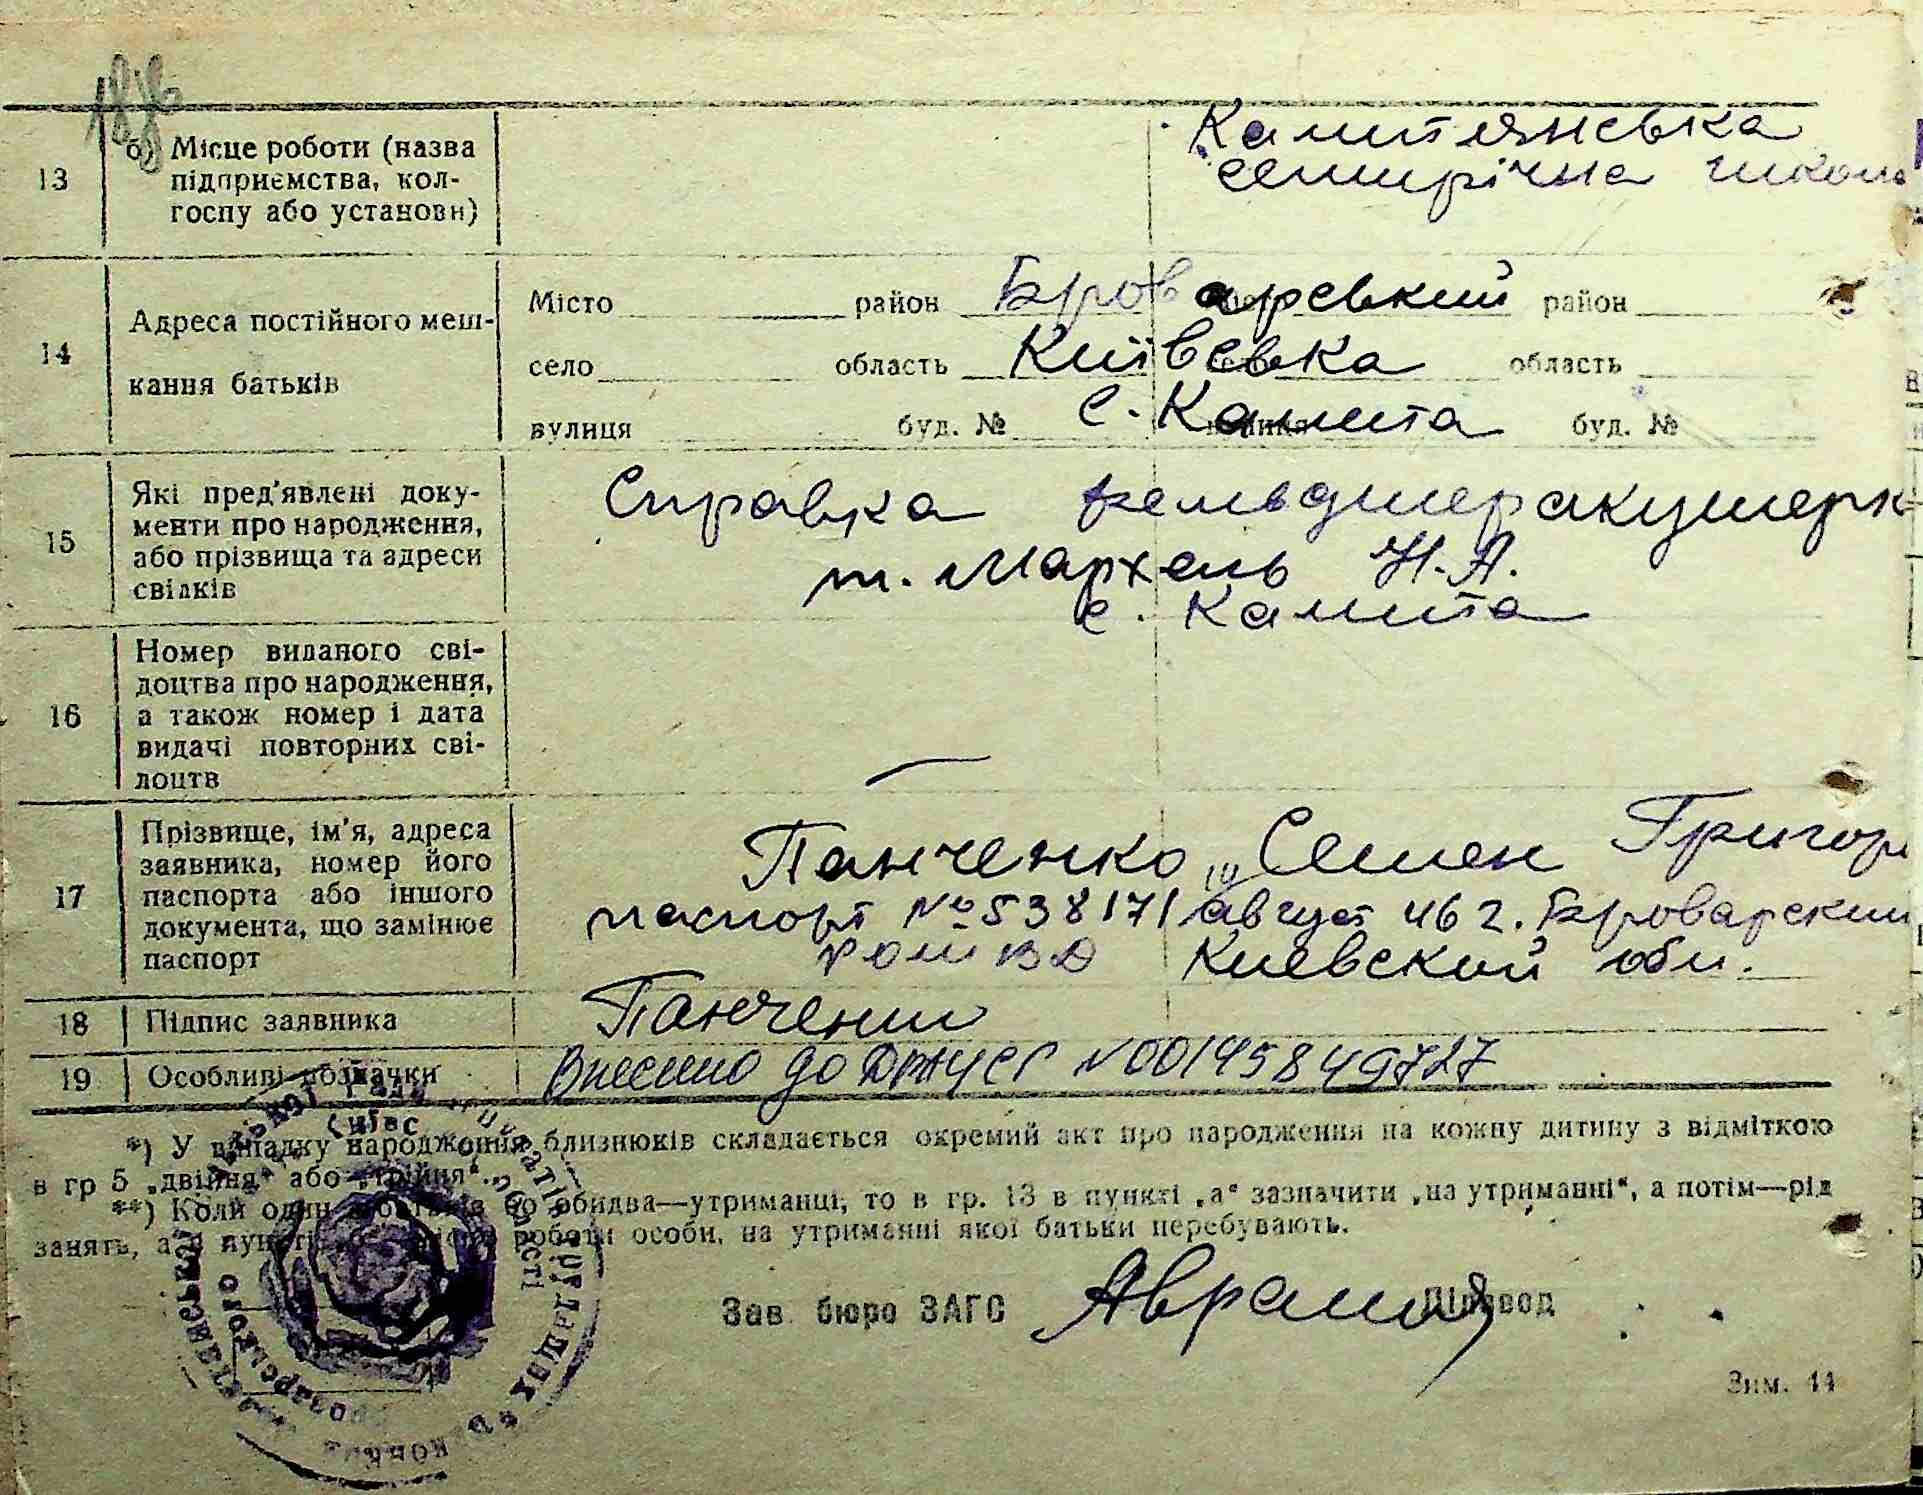 13
б) Місце роботи (назва
підприємства, кол-
госпу або установи)
Калитянська
семирічна школа
14
Адреса постійного меш-
кання батьків
Місто район Броварський район
село область Київська область
вулиця буд. № с. Калита буд. №
15
Які пред'явлені доку-
менти про народження,
або прізвища та адреси
свідків
Справка
т. Мархель Н.А.
с. Калита
16
Номер виданого сві-
доцтва про народження,
а також номер і дата
видачі повторних сві-
доцтв
—
17
Прізвище, ім'я, адреса
заявника, номер його
паспорта або іншого
документа, що замінює
паспорт
Панченко Семен Григор
паспорт № 538171 август 46 г. Броварским
РОМВД Киевской обл.
18
Підпис заявника
19
Особливі позначки
Внесено до ДРАЦСГ N00145849727
*) У випадку народження близнюків складається окремий акт про народження на кожну дитину з відміткою
в гр 5 „двійня“ або „трійня“.
**) Коли один з батьків або обидва—утриманці, то в гр. 13 в пункті „а“ зазначити „на утриманні“, а потім—рід
занять, а в пункті роботи особи, на утриманні якої батьки перебувають.
Зав. бюро ЗАГС
Діловод
Зим. 44